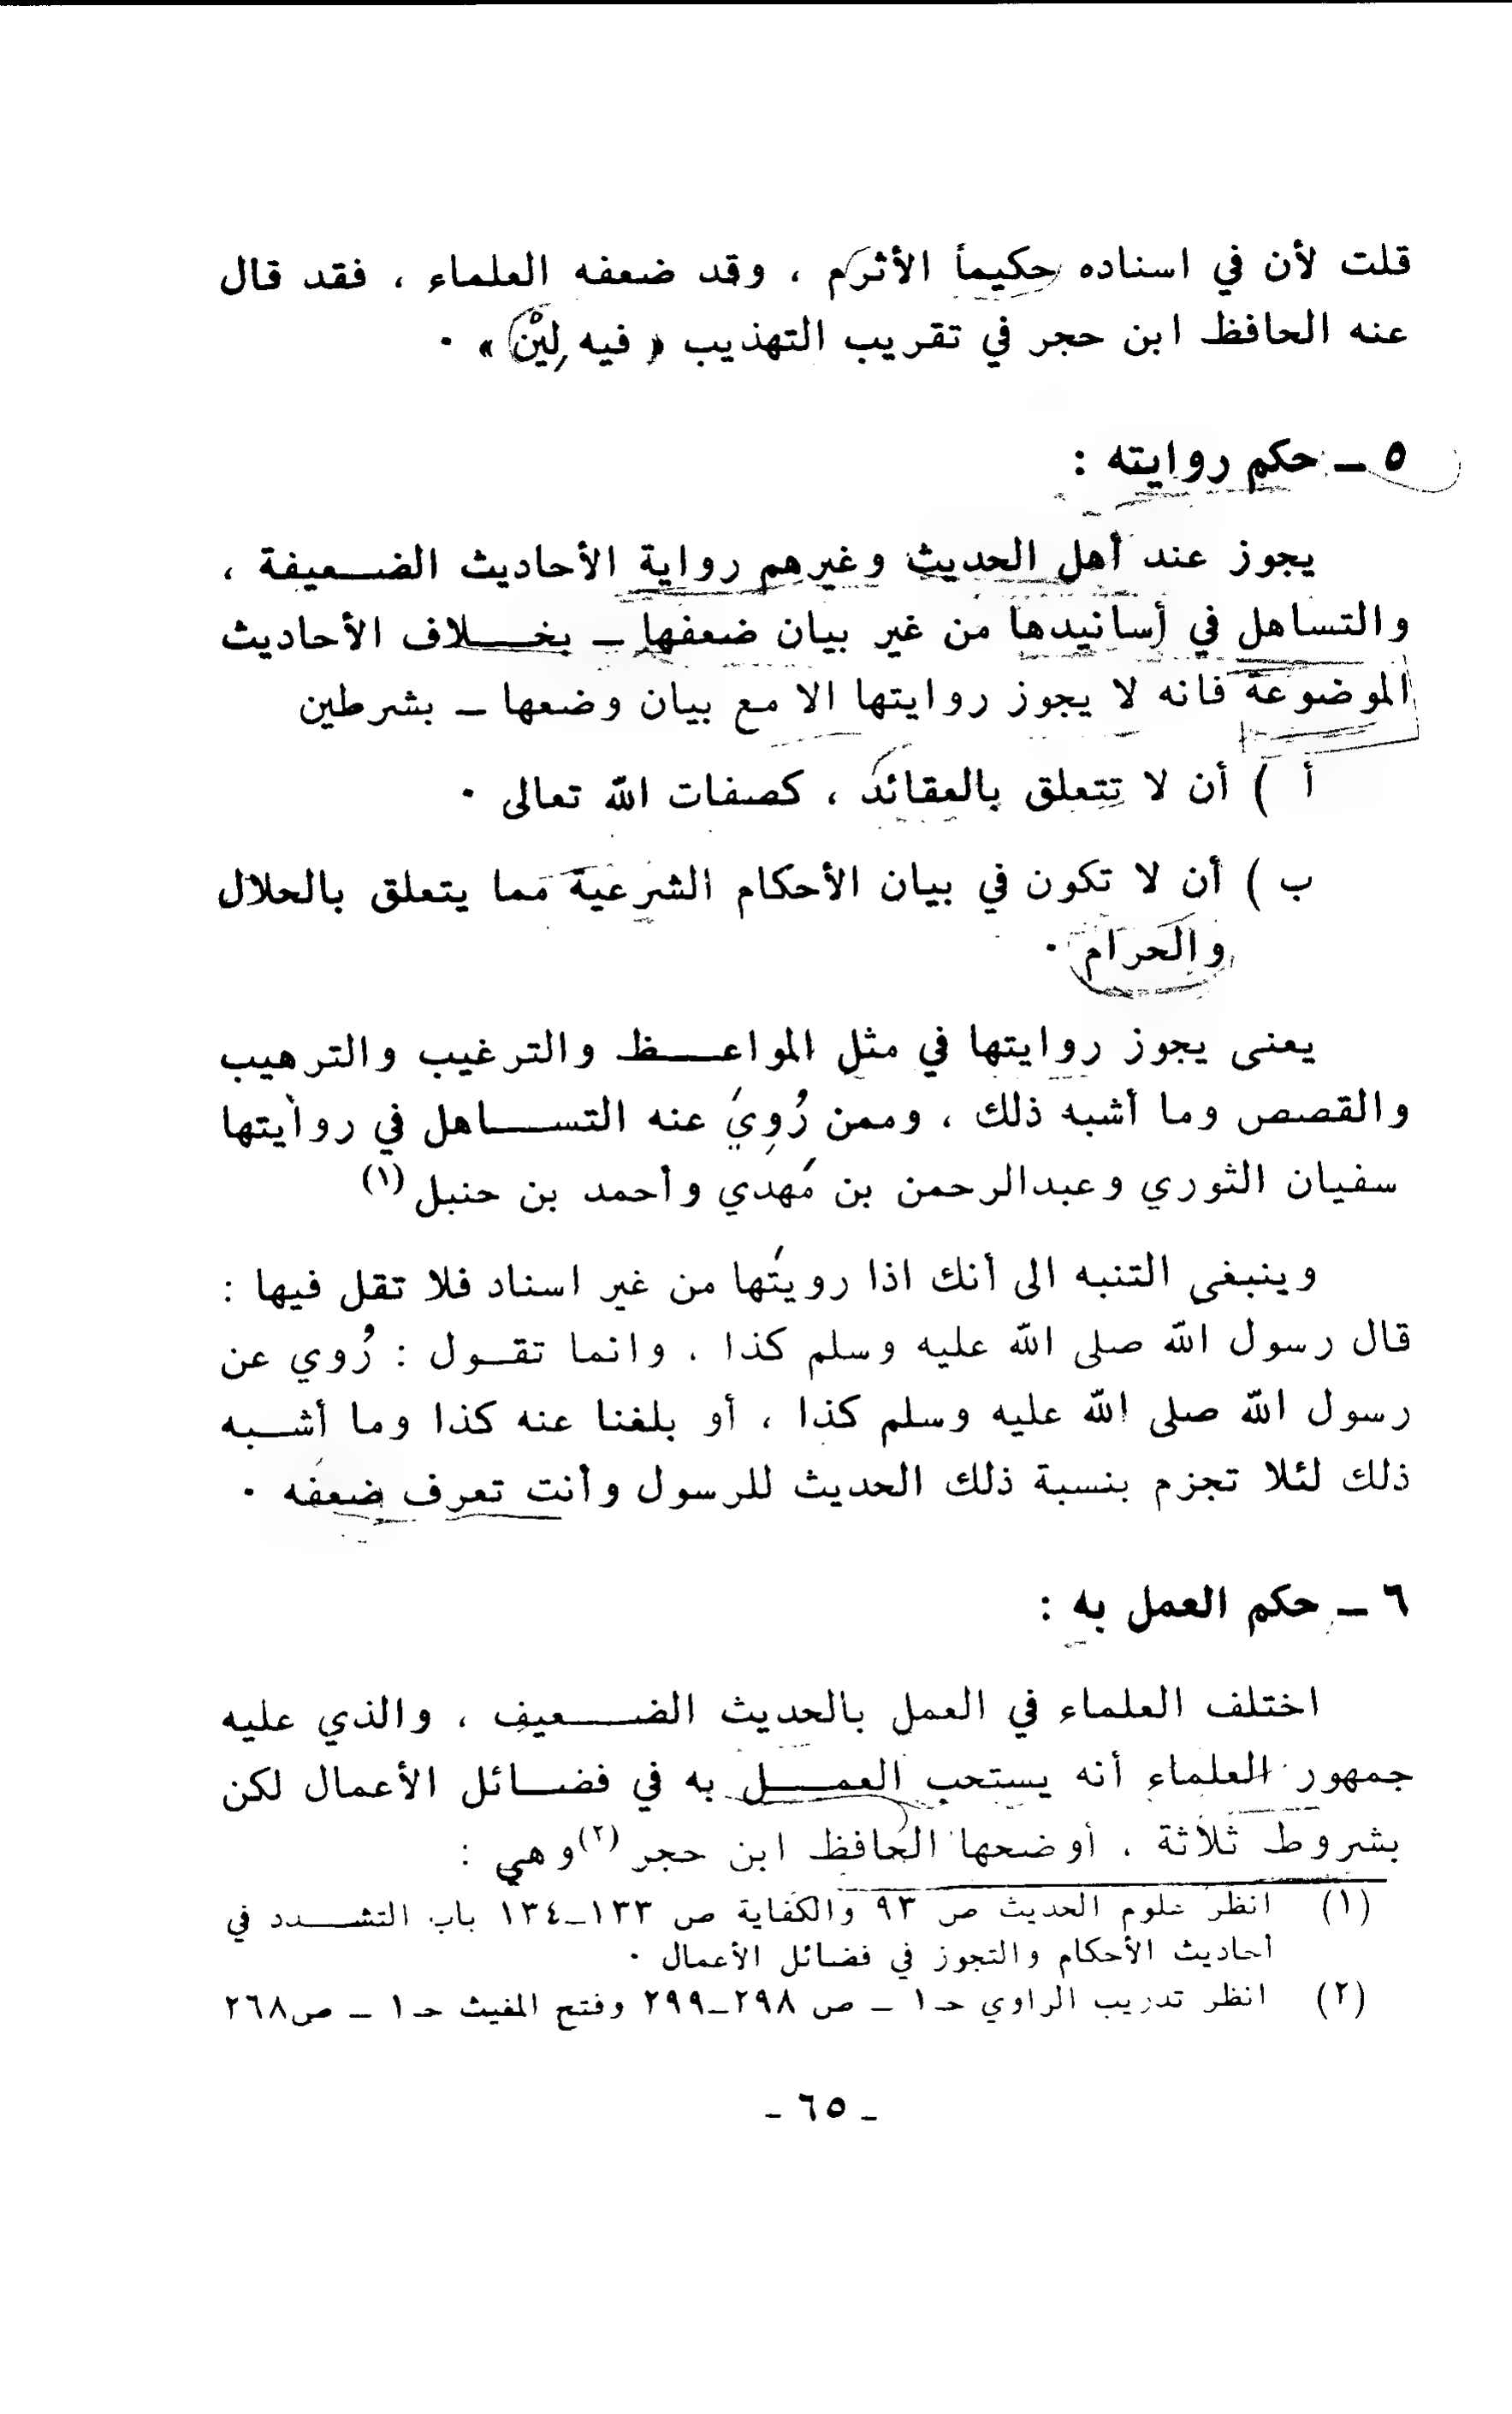 قلت لأن في اسناده حكيماً الأثرم ، وقد ضعفه العلماء ، فقد قال
عنه الحافظ ابن حجر في تقريب التهذيب « فيه لِيْن » .
٥ ــ حكم روايته :
يجوز عند أهل الحديث وغيرهم رواية الأحاديث الضعيفة ،
والتساهل في أسانيدها من غير بيان ضعفها ــ بخلاف الأحاديث
الموضوعة فانه لا يجوز روايتها الا مع بيان وضعها ــ بشرطين
أ ) أن لا تتعلق بالعقائد ، كصفات الله تعالى .
ب ) أن لا تكون في بيان الأحكام الشرعية مما يتعلق بالحلال
والحرام .
يعنى يجوز روايتها في مثل المواعظ والترغيب والترهيب
والقصص وما أشبه ذلك ، وممن رُوِيَ عنه التساهل في روايتها
سفيان الثوري وعبدالرحمن بن مَهدي وأحمد بن حنبل (١)
وينبغى التنبه الى أنك اذا رويتَها من غير اسناد فلا تقل فيها :
قال رسول الله صلى الله عليه وسلم كذا ، وانما تقول : رُوي عن
رسول الله صلى الله عليه وسلم كذا ، أو بلغنا عنه كذا وما أشبه
ذلك لئلا تجزم بنسبة ذلك الحديث للرسول وأنت تعرف ضعفه .
٦ ــ حكم العمل به :
اختلف العلماء في العمل بالحديث الضعيف ، والذي عليه
جمهور العلماء أنه يستحب العمل به في فضائل الأعمال لكن
بشروط ثلاثة ، أوضحها الحافظ ابن حجر (٢) وهي :
(١) انظر علوم الحديث ص ٩٣ والكفاية ص ١٣٣ــ١٣٤ باب التشدد في
أحاديث الأحكام والتجوز في فضائل الأعمال .
(٢) انظر تدريب الراوي حـ١ ــ ص ٢٩٨ــ٢٩٩ وفتح المغيث حـ١ ــ ص٢٦٨
ـ ٦٥ ـ